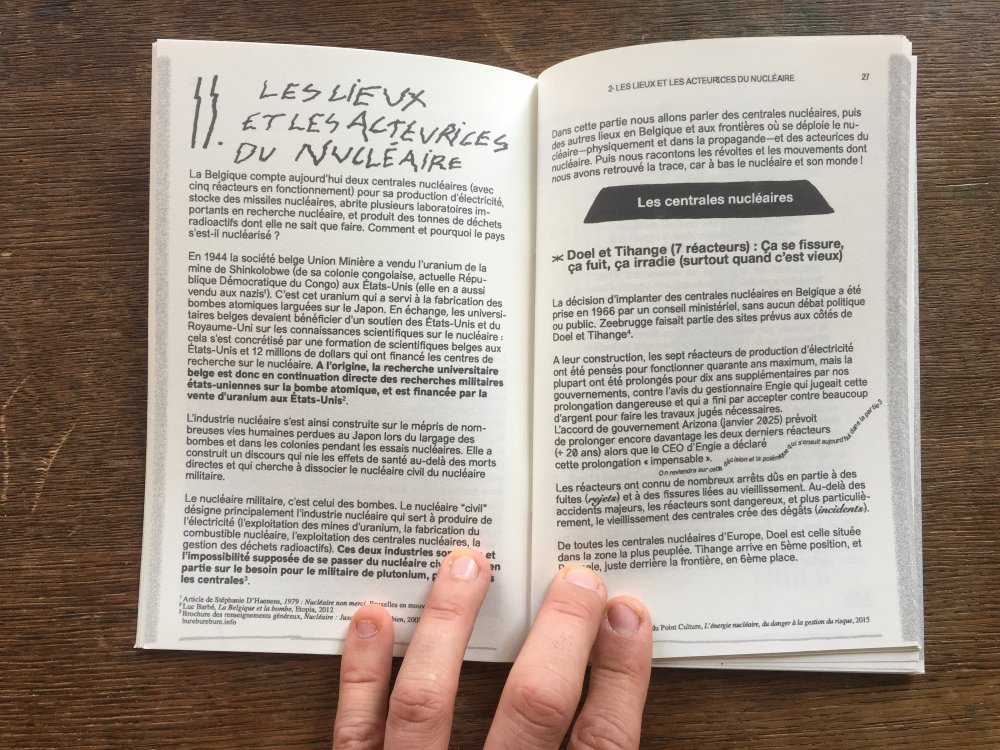 II.
LES LIEUX
ET LES ACTEURICES
DU NUCLÉAIRE
La Belgique compte aujourd'hui deux centrales nucléaires (avec
cinq réacteurs en fonctionnement) pour sa production d'électricité,
stocke des missiles nucléaires, abrite plusieurs laboratoires im-
portants en recherche nucléaire, et produit des tonnes de déchets
radioactifs dont elle ne sait que faire. Comment et pourquoi le pays
s'est-il nucléarisé ?
En 1944 la société belge Union Minière a vendu l'uranium de la
mine de Shinkolobwe (de sa colonie congolaise, actuelle Répu-
blique Démocratique du Congo) aux États-Unis (elle en a aussi
vendu aux nazis¹). C'est cet uranium qui a servi à la fabrication des
bombes atomiques larguées sur le Japon. En échange, les universi-
taires belges devaient bénéficier d'un soutien des États-Unis et du
Royaume-Uni sur les connaissances scientifiques sur le nucléaire :
cela s'est concrétisé par une formation de scientifiques belges aux
États-Unis et 12 millions de dollars qui ont financé les centres de
recherche sur le nucléaire. A l'origine, la recherche universitaire
belge est donc en continuation directe des recherches militaires
états-uniennes sur la bombe atomique, et est financée par la
vente d'uranium aux États-Unis².
L'industrie nucléaire s'est ainsi construite sur le mépris de nom-
breuses vies humaines perdues au Japon lors du largage des
bombes et dans les colonies pendant les essais nucléaires. Elle a
construit un discours qui nie les effets de santé au-delà des morts
directes et qui cherche à dissocier le nucléaire civil du nucléaire
militaire.
Le nucléaire militaire, c'est celui des bombes. Le nucléaire “civil”
désigne principalement l'industrie nucléaire qui sert à produire de
l'électricité (l'exploitation des mines d'uranium, la fabrication du
combustible nucléaire, l'exploitation des centrales nucléaires, la
gestion des déchets radioactifs). Ces deux industries et
l'impossibilité supposée de se passer du nucléaire en
partie sur le besoin pour le militaire de plutonium,
les centrales³.
¹ Article de Stéphanie D'Haenens, 1979 : Nucléaire non merci, Bruxelles en
² Luc Barbé, La Belgique et la bombe, Etopia, 2012
³ Brochure des renseignements généreux, Nucléaire :
bureburebure.info
2- LES LIEUX ET LES ACTEURICES DU NUCLÉAIRE 27
Dans cette partie nous allons parler des centrales nucléaires, puis
des autres lieux en Belgique et aux frontières où se déploie le nu-
cléaire—physiquement et dans la propagande—et des acteurices du
nucléaire. Puis nous racontons les révoltes et les mouvements dont
nous avons retrouvé la trace, car à bas le nucléaire et son monde !
Les centrales nucléaires
Doel et Tihange (7 réacteurs) : Ça se fissure,
ça fuit, ça irradie (surtout quand c'est vieux)
La décision d'implanter des centrales nucléaires en Belgique a été
prise en 1966 par un conseil ministériel, sans aucun débat politique
ou public. Zeebrugge faisait partie des sites prévus aux côtés de
Doel et Tihange⁴.
A leur construction, les sept réacteurs de production d'électricité
ont été pensés pour fonctionner quarante ans maximum, mais la
plupart ont été prolongés pour dix ans supplémentaires par nos
gouvernements, contre l'avis du gestionnaire Engie qui jugeait cette
prolongation dangereuse et qui a fini par accepter contre beaucoup
d'argent pour faire les travaux jugés nécessaires.
L'accord de gouvernement Arizona (janvier 2025) prévoit
de prolonger encore davantage les deux derniers réacteurs
(+ 20 ans) alors que le CEO d'Engie a déclaré
cette prolongation « impensable ».
On reviendra sur cette décision et la polémique qui s'ensuit aujourd'hui dans la partie 3
Les réacteurs ont connu de nombreux arrêts dûs en partie à des
fuites (rejets) et à des fissures liées au vieillissement. Au-delà des
accidents majeurs, les réacteurs sont dangereux, et plus particuliè-
rement, le vieillissement des centrales crée des dégâts (incidents).
De toutes les centrales nucléaires d'Europe, Doel est celle située
dans la zone la plus peuplée. Tihange arrive en 5ème position, et
juste derrière la frontière, en 6ème place.
du Point Culture, L'énergie nucléaire, du danger à la gestion du risque, 2015